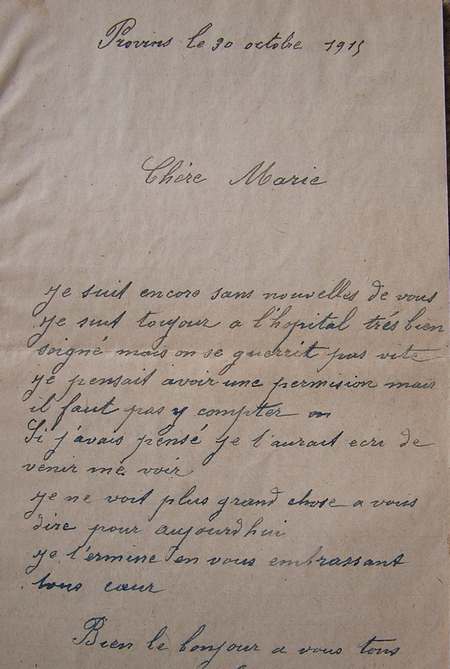 Provins le 30 octobre 1915
Chère Marie
Je suit encore sans nouvelles de vous
Je suit toujour a l'hopital trés bien
soigné mais on se guerrit pas vite
Je pensait avoir une permision mais
il faut pas y compter on
Si j'avais pensé je t'aurait ecri de
venir me voir
Je ne voit plus grand chose a vous
dire pour aujourdhui
Je termine en vous embrassant
tous cœur
Bien le bonjour a vous tous